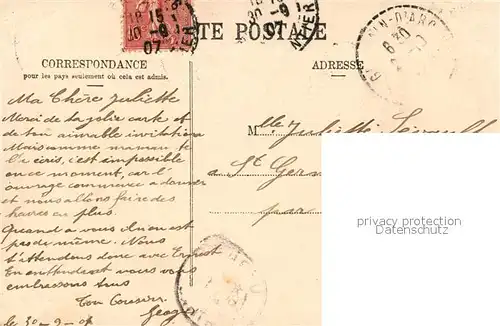 18 15
30 -9
07
30 -9
07
NIÈR
CARTE POSTALE
IN-D'ARC
6 30
CORRESPONDANCE
pour les pays seulement où cela est admis.
ADRESSE
Ma Chère Juliette
Merci de ta jolie carte et
de ton aimable invitation
Mais comme maman te
l'a écris, c'est impossible
en ce moment, car l'
ouvrage commence à donner
et nous allons faire des
heures en plus.
Quand à vous il n'en est
pas de même. Nous
t'attendons donc avec Ernest
En attendant nous vous
embrassons tous
Ton Cousin
le 30-9-07
Mlle Juliette
à St Germ
par
privacy protection
www.delcampe.net